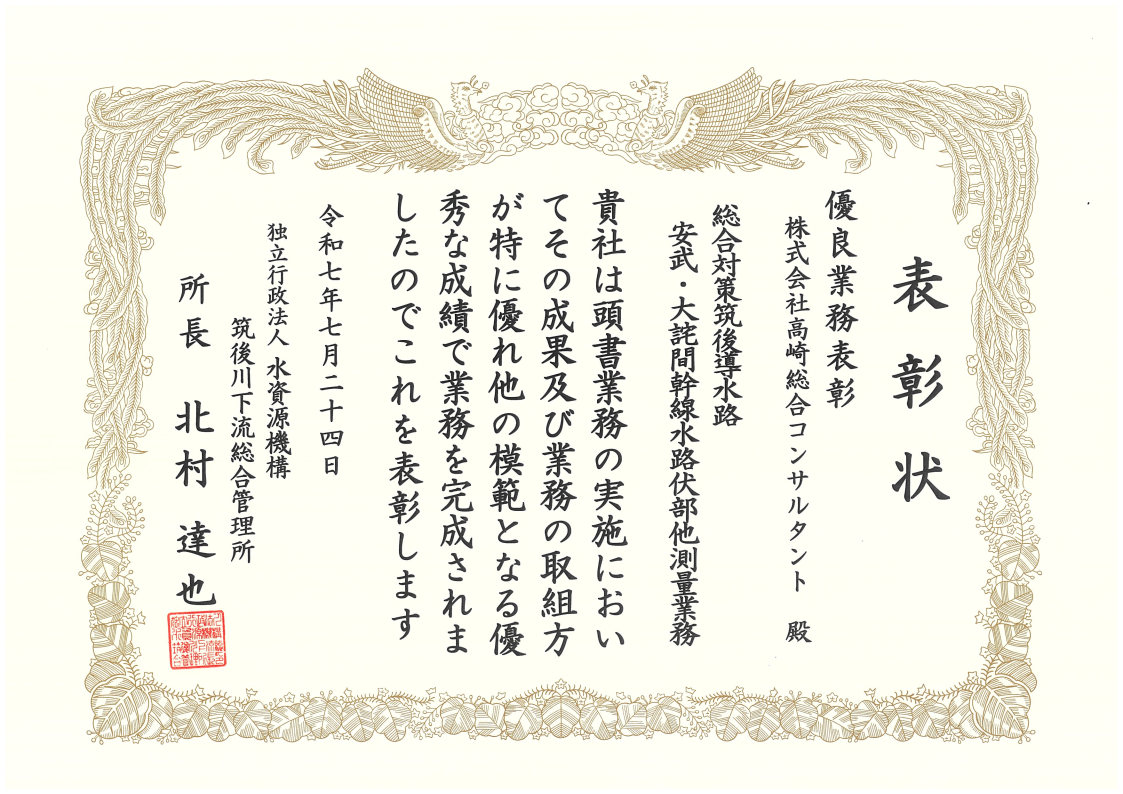 表彰状
優良業務表彰
株式会社高崎総合コンサルタント 殿
総合対策筑後導水路
安武・大詫間幹線水路伏部他測量業務
貴社は頭書業務の実施におい
てその成果及び業務の取組方
が特に優れ他の模範となる優
秀な成績で業務を完成されま
したのでこれを表彰します
令和七年七月二十四日
独立行政法人 水資源機構
筑後川下流総合管理所
所長 北村 達也